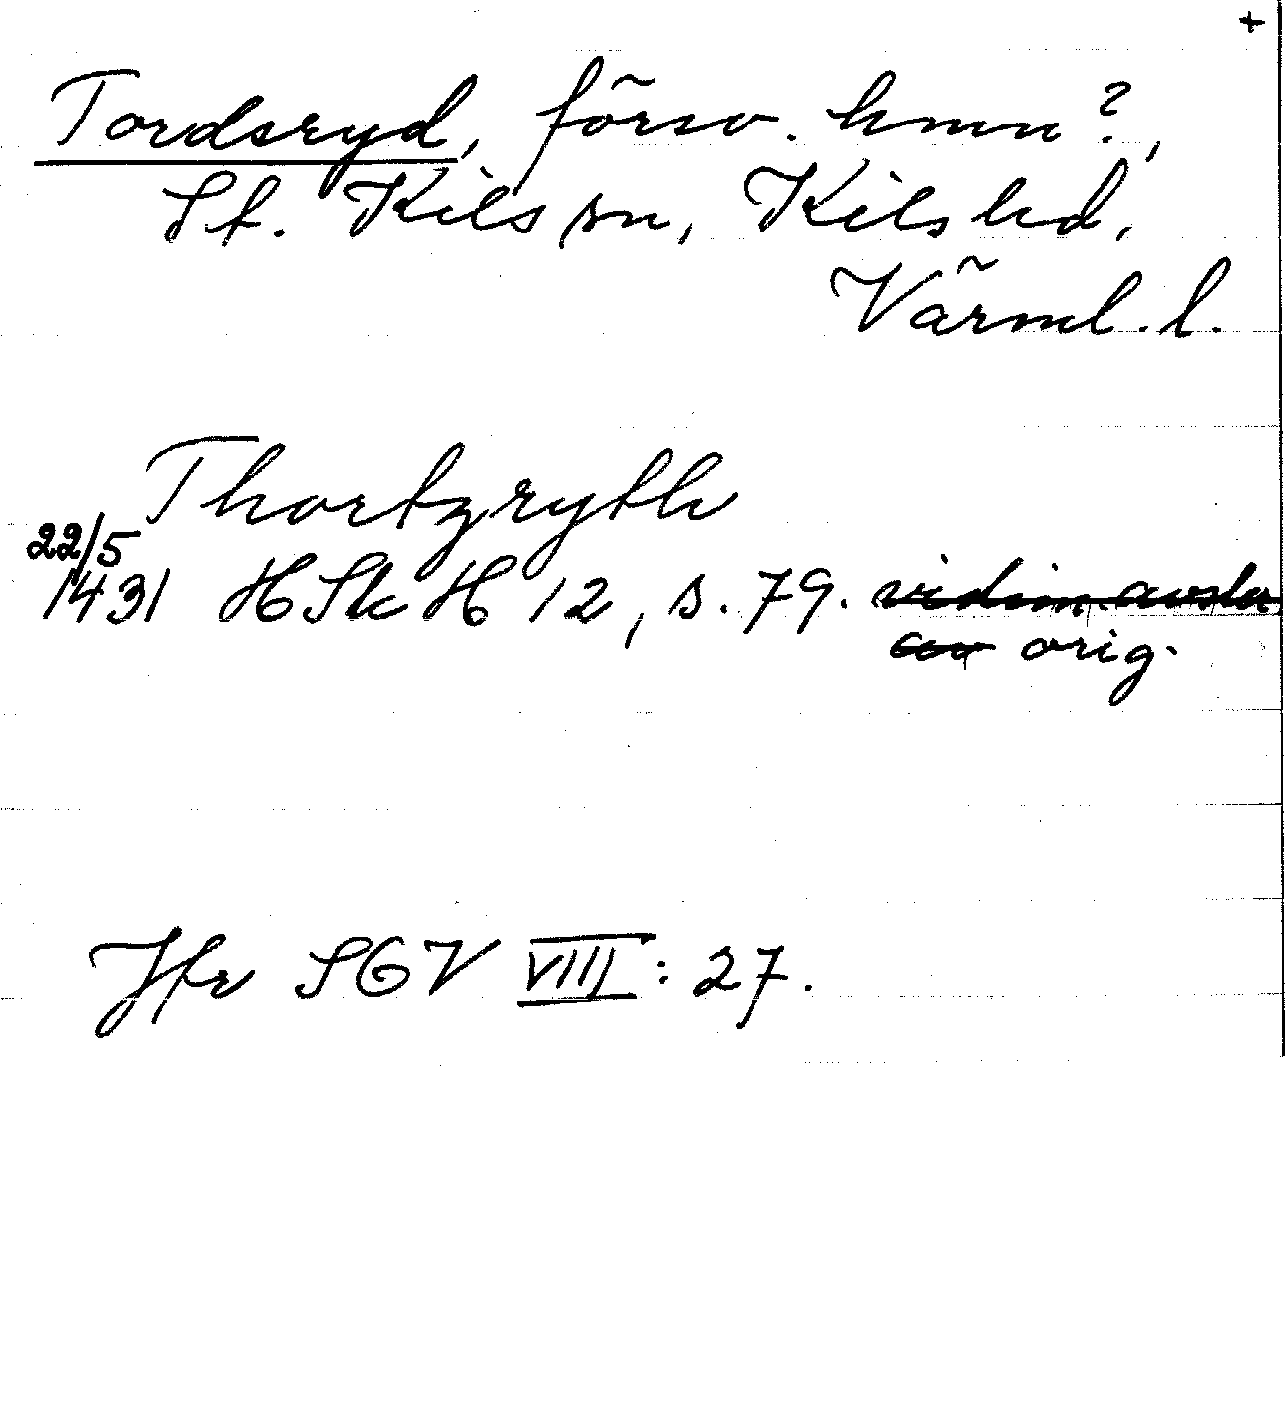 +
Tordsryd, försv. hmn?,
St. Kils sn, Kils hd,
Värml. l.
Thortzryth
22/5
1431 HSkH 12, s. 79. vidim. avskr
av orig.
Jfr SOV VIII: 27.